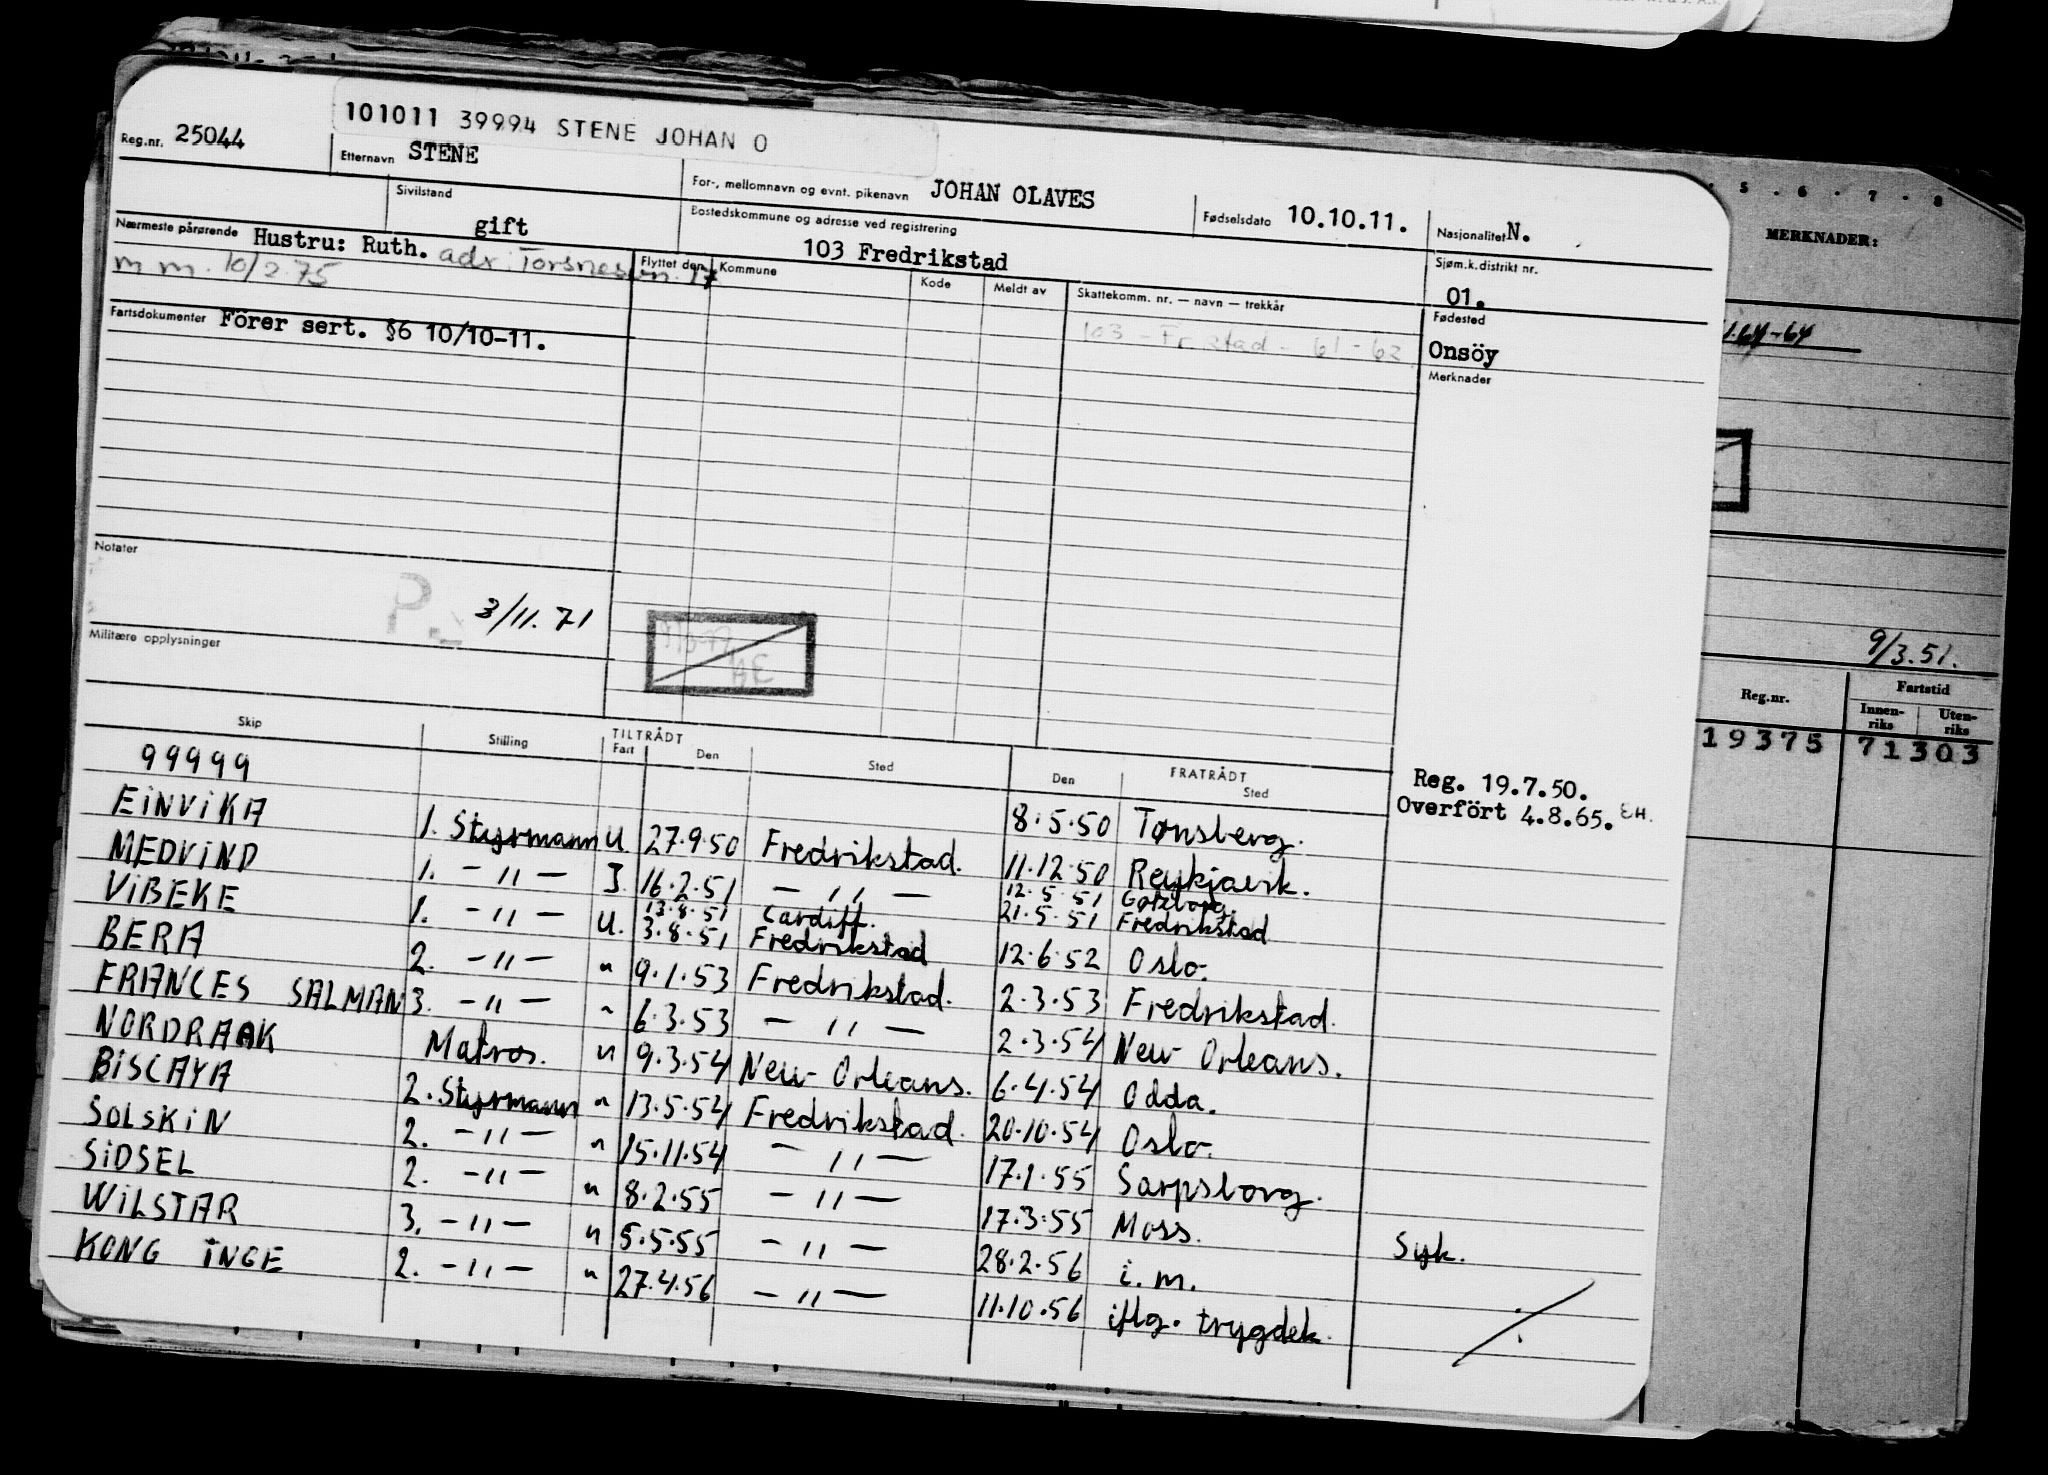 101011 39994 STENE JOHAN O
Reg.nr. 25044
Etternavn STENE
For-, mellomnavn og evnt. pikenavn JOHAN OLAVES
Fødselsdato 10.10.11.
Nasjonalitet N.
Sivilstand gift
Bostedskommune og adresse ved registrering
103 Fredrikstad
Sjøm.k.distrikt nr.
01.
Nærmeste pårørende Hustru: Ruth. adr. Torsnesvn. 17
m m. 10/2.75
Flyttet den Kommune Kode Meldt av Skattekomm. nr. — navn — trekkår
103 - Fr.stad - 61-62
Fødested
Onsöy
Fartsdokumenter Förer sert. §6 10/10-11.
Merknader
Notater
P. 3/11.71
Militære opplysninger
Skip Stilling TILTRÅDT Fart Den Sted FRATRÅDT Den Sted
Reg. 19.7.50.
Overfört 4.8.65. EH.
99999 8.5.50 Tønsberg.
EINVIKA 1. Styrmann U. 27.9.50 Fredrikstad. 11.12.50 Reykjavik.
MEDVIND 1. -"- I. 16.2.51 -"- 12.5.51 Gøteborg.
21.5.51 Fredrikstad
VIBEKE 1. -"- U. 13.8.51 Cardiff.
3.8.51 Fredrikstad 12.6.52 Oslo.
BERA 2. -"- " 9.1.53 Fredrikstad. 2.3.53 Fredrikstad.
FRANCES SALMAN 3. -"- " 6.3.53 -"- 2.3.54 New Orleans.
NORDRAAK Matros. " 9.3.54 New Orleans. 6.4.54 Odda.
BISCAYA 2. Styrmann " 13.5.54 Fredrikstad. 20.10.54 Oslo.
SOLSKIN 2. -"- " 15.11.54 -"- 17.1.55 Sarpsborg.
SIDSEL 2. -"- " 8.2.55 -"- 17.3.55 Moss.
WILSTAR 3. -"- " 5.5.55 -"- 28.2.56 i. m. Syk.
KONG INGE 2. -"- " 27.4.56 -"- 11.10.56 iflg. trygdek.
5 . 6 . 7 . 8
MERKNADER:
1.64-64
9/3.51.
Reg.nr. Fartstid
Innenriks Utenriks
19375 71303